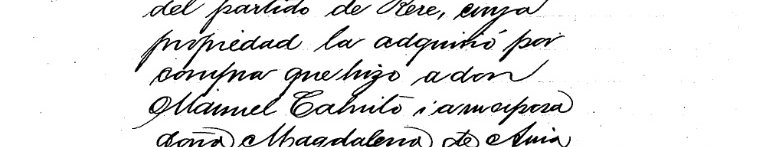 del partido de Rere, cuya
propiedad la adquirió por
compra que hizo a don
Manuel i a su esposa
Doña Magdalena de